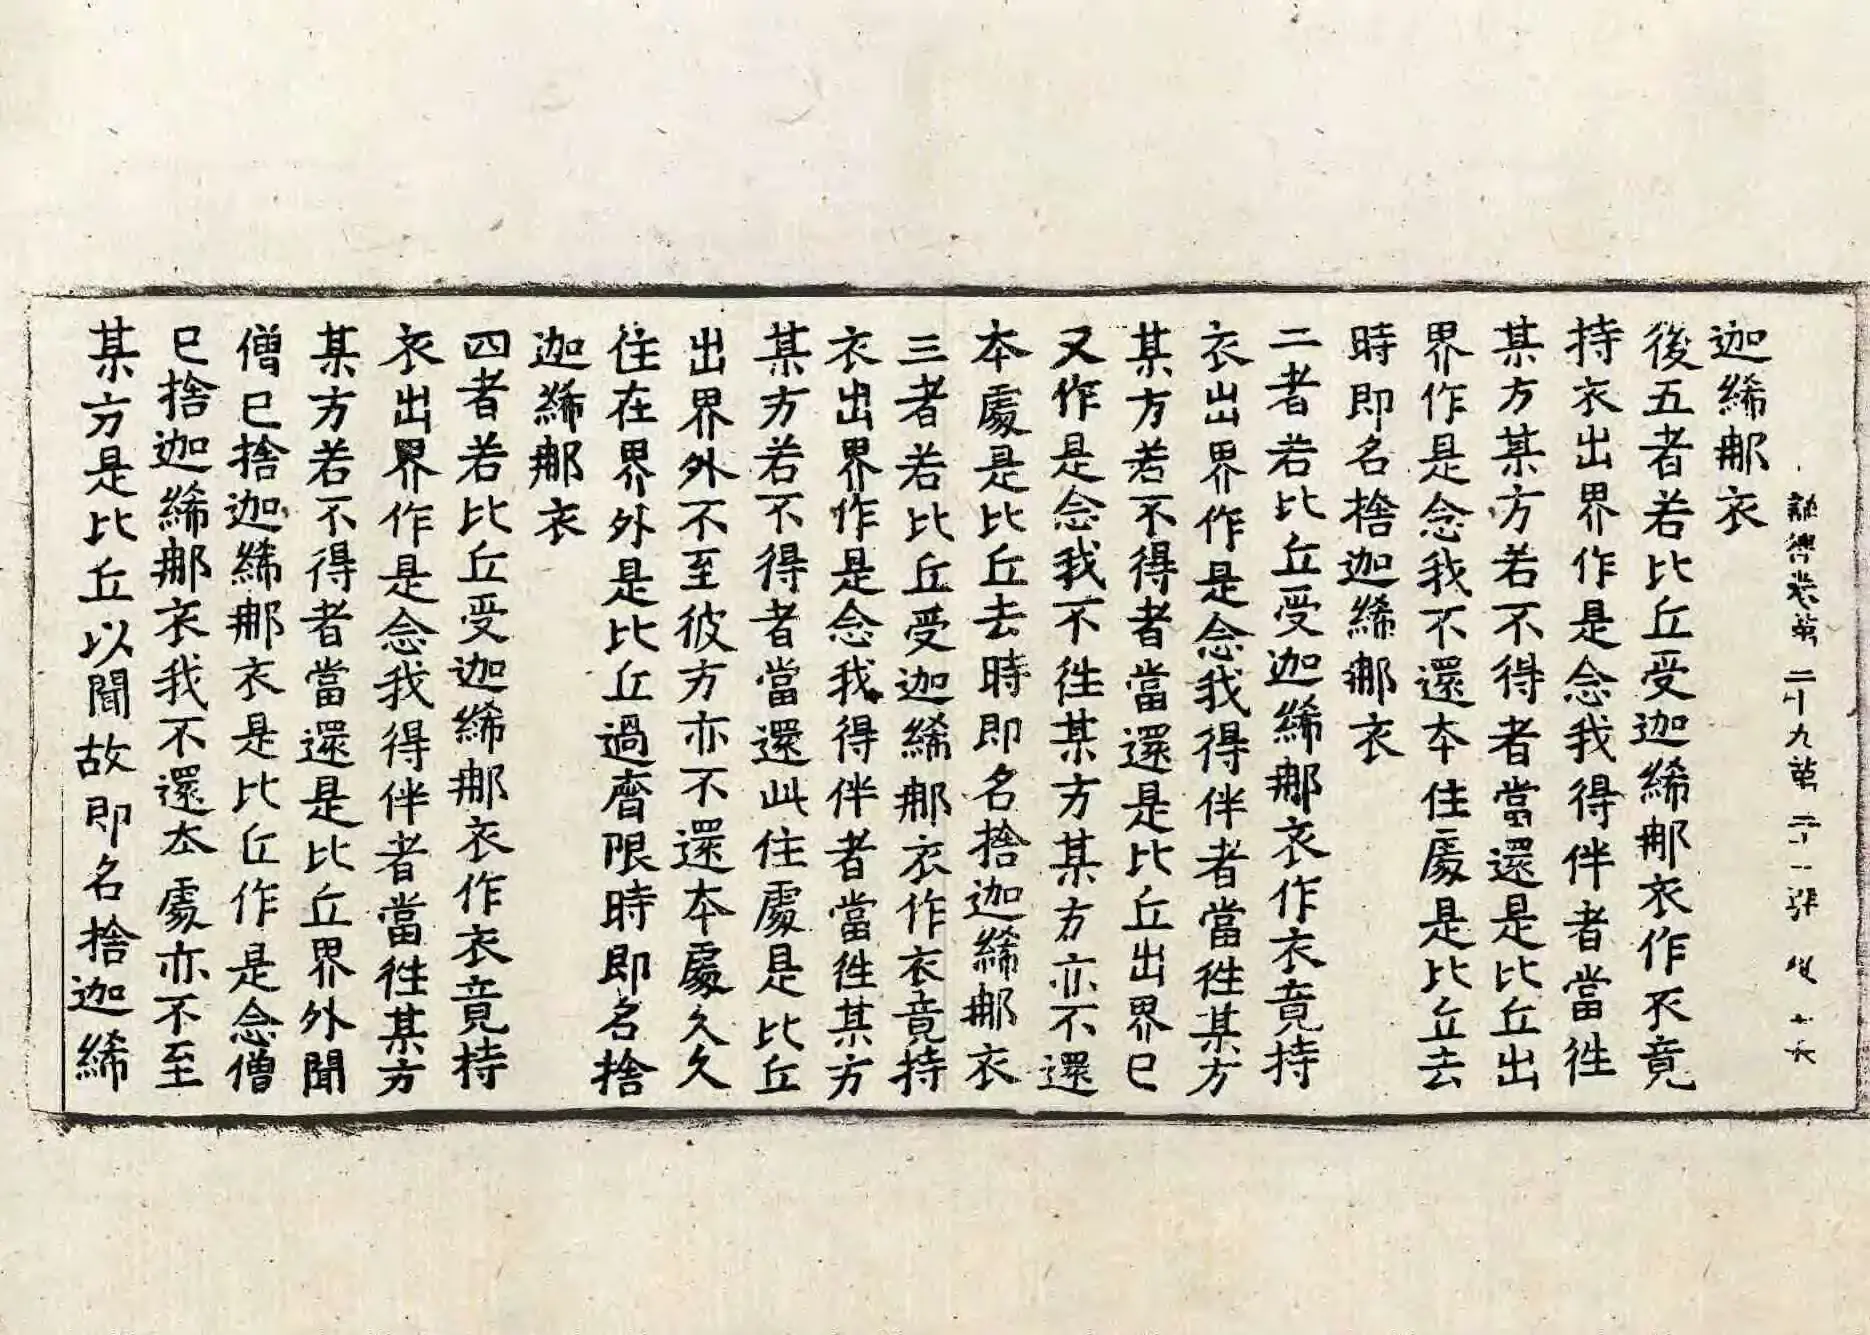 迦絺那衣
後五者若比丘受迦絺那衣作衣竟
持衣出界作是念我得伴者當往
某方某方若不得者當還是比丘出
界作是念我不還本住處是比丘去
時即名捨迦絺那衣
二者若比丘受迦絺那衣作衣竟持
衣出界作是念我得伴者當往某方
某方若不得者當還是比丘出界已
又作是念我不往某方某方亦不還
本處是比丘去時即名捨迦絺那衣
三者若比丘受迦絺那衣作衣竟持
衣出界作是念我得伴者當往某方
某方若不得者當還此住處是比丘
出界外不至彼方亦不還本處久久
住在界外是比丘過齊限時即名捨
迦絺那衣
四者若比丘受迦絺那衣作衣竟持
衣出界作是念我得伴者當往某方
某方若不得者當還是比丘界外聞
僧已捨迦絺那衣是比丘作是念僧
已捨迦絺那衣我不還本處亦不至
某方是比丘以聞故即名捨迦絺
律卷第二十九第二十一張